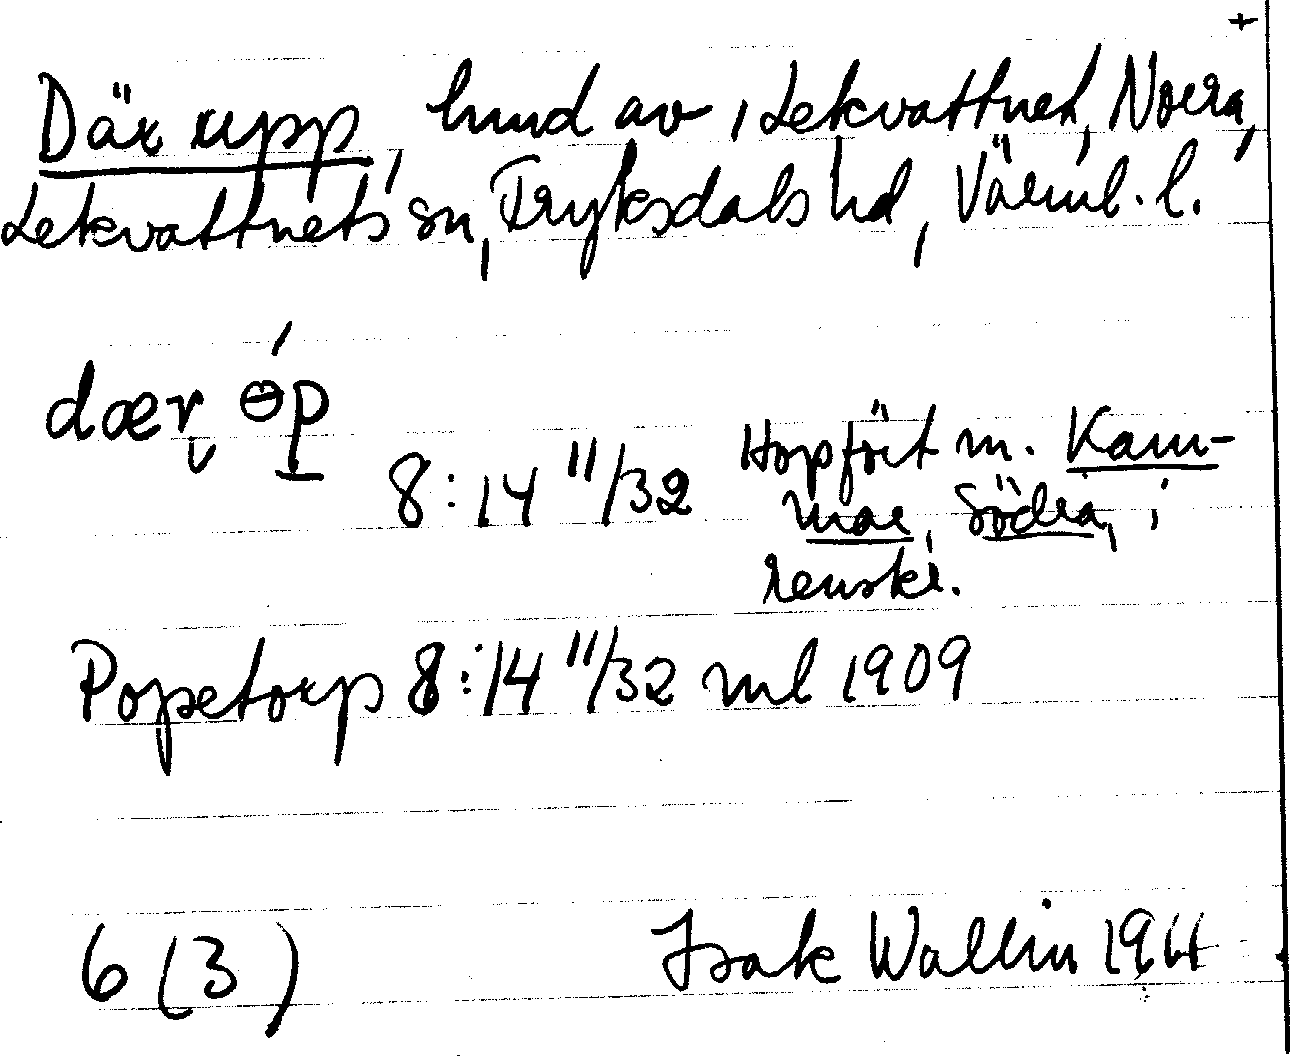 +
Där upp, hmd av, Lekvattnet, Norra,
Lekvattnets sn, Fryksdals hd, Värml. l.
dær óp
8:14 11/32 Hopfört m. Kam-
mar, Södra, i
renskr.
Popetorp 8:14 11/32 ml 1909
6 (3) Isak Wallin 1964